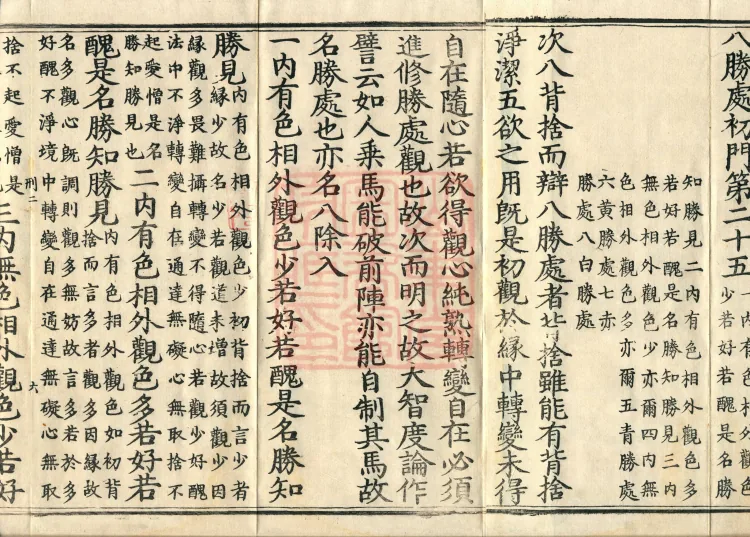 八勝處初門第二十五
一內有色相外觀色
少若好若醜是名勝
知勝見二內有色相外觀色多
若好若醜是名勝知勝見三內
無色相外觀色少亦爾四內無
色相外觀色多亦爾五青勝處
六黃勝處七赤
勝處八白勝處
次八背捨而辯八勝處者背捨雖能有背捨
淨潔五欲之用旣是初觀於緣中轉變未得
自在隨心若欲得觀心純熟轉變自在必須
進修勝處觀也故次而明之故大智度論作
譬云如人乘馬能破前陣亦能自制其馬故
名勝處也亦名八除入
一內有色相外觀色少若好若醜是名勝知
勝見
內有色相外觀色少初背捨而言少者
緣少故名少若觀道未增故須觀少因
緣觀多畏難攝轉變不得隨心若觀少好醜
法中不淨轉變自在通達無礙心無取捨不
起愛憎是名
勝知勝見也
二內有色相外觀色多若好若
醜是名勝知勝見
內有色相外觀色如初背
捨而言多者觀多因緣故
名多觀心旣調則觀多無妨故言多若於多
好醜不淨境中轉變自在通達無礙心無取
捨不起愛憎是
三內無色相外觀色少若好
刑二
六